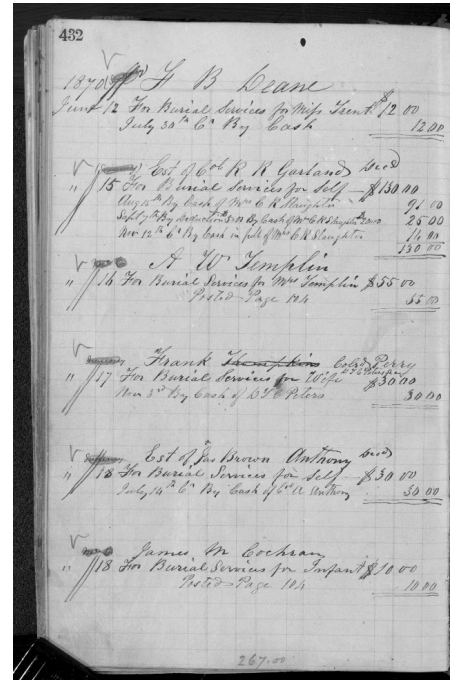 432
1870 F B Deane
June 12 For Burial Services for Miss Trent $12 00
July 30th Cr By Cash 12 00
Est of Col R R Garland Decd
" 15 For Burial Services for Self $130 00
Aug 15th By Cash of Mrs C R Slaughter 91 00
Sept 9th By deduction $5.00 By Cash of Mrs C R Slaughter 20.00 25 00
Nov 12th Cr By Cash in full of Mrs C R Slaughter 14 00
130 00
A W Templin
" 16 For Burial Services for Mrs Templin $55 00
Posted Page 104 55 00
Frank Thompkins Colrd Perry
" 17 For Burial Services for Wife $30 00
Nov 3rd By Cash of D T C Peters 30 00
Est of Jas Brown Anthony Decd
" 18 For Burial Services for Self $30 00
July 14th Cr By Cash of A Anthony 30 00
James M Cochran
" 18 For Burial Services for Infant $10 00
Posted Page 104 10 00
267.00